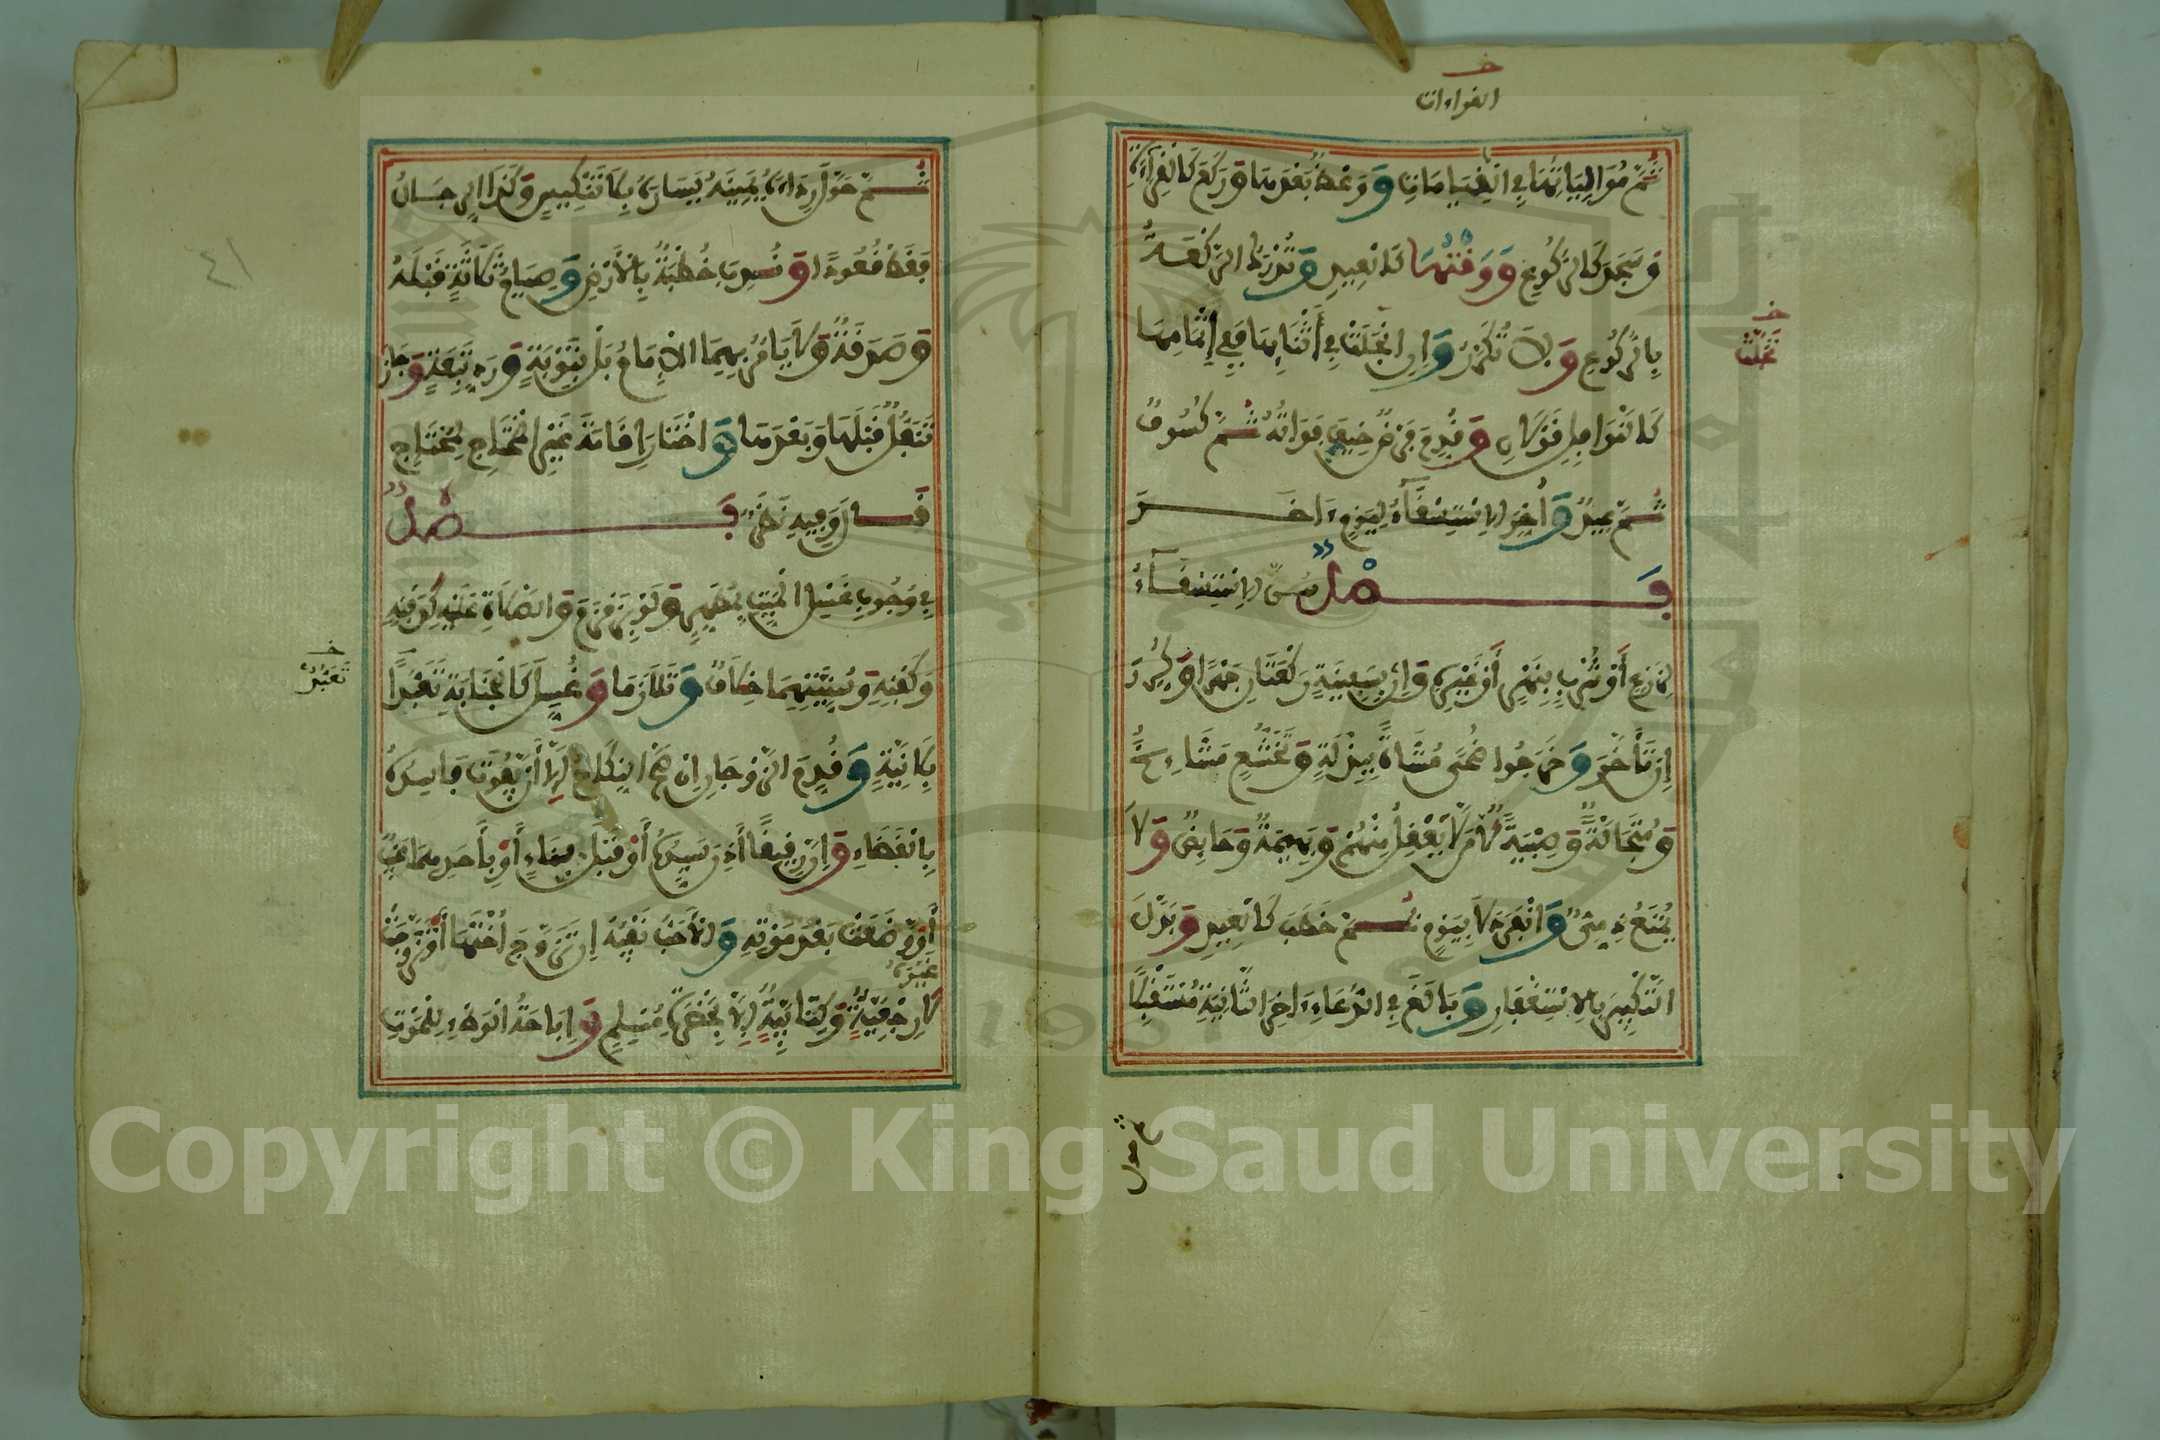 القراءات
ثُمَّ مُوَالِيَاتُهَا فِي الْقِيَامَاتِ وَوَعْظٌ بَعْدَهَا وَرَكَعَ كَالْقِرَاءَةِ
وَسَجَدَ كَالرُّكُوعِ وَوَقْتُهَا كَالْعِيدِ وَتُدْرَكُ الرَّكْعَةُ
بِالرُّكُوعِ وَلَا تُكَرَّرُ وَإِنِ انْجَلَتْ فِي أَثْنَائِهَا فَفِي إِتْمَامِهَا
تَجَلَّتْ
كَالنَّوَافِلِ قَوْلَانِ وَقُدِّمَ فَرْضٌ خِيفَ فَوَاتُهُ ثُمَّ كُسُوفٌ
ثُمَّ عِيدٌ وَأُخِّرَ الِاسْتِسْقَاءُ لِيَوْمٍ ءَاخَرَ
فَصْلٌ سُنَّ الِاسْتِسْقَاءُ
لِزَرْعٍ أَوْ شُرْبٍ بِنَهْرٍ أَوْ غَيْرِهِ وَإِنْ بِسَفِينَةٍ رَكْعَتَانِ جَهْرًا وَكُرِّرَ
إِنْ تَأَخَّرَ وَخَرَجُوا ضُحًى مُشَاةً بِبِذْلَةٍ وَتَخَشُّعٍ مَشَائِخُ
وَمُتَجَالَّةٌ وَصِبْيَةٌ لَا مَنْ لَا يَعْقِلُ مِنْهُمْ وَبَهِيمَةٌ وَحَائِضٌ وَلَا
يُمْنَعُ ذِمِّيٌّ وَانْفَرَدَ لَا بِيَوْمٍ ثُمَّ خَطَبَ كَالْعِيدِ وَبَدَّلَ
التَّكْبِيرَ بِالِاسْتِغْفَارِ وَبَالَغَ فِي الدُّعَاءِ ءَاخِرَ الثَّانِيَةِ مُسْتَقْبِلًا
ثم حول
ثُمَّ حَوَّلَ رِدَاءَهُ يَمِينَهُ يَسَارَهُ بِلَا تَنْكِيسٍ وَكَذَا الرِّجَالُ
فَقَطْ قُعُودًا وَنُدِبَ خُطْبَةٌ بِالْأَرْضِ وَصِيَامُ ثَلَاثَةٍ قَبْلَهُ
٤١
وَصَدَقَةٌ وَلَا يَأْمُرُ بِهِمَا الْإِمَامُ بَلْ بِتَوْبَةٍ وَرَدِّ تَبِعَةٍ وَجَازَ
تَنَفُّلٌ قَبْلَهَا وَبَعْدَهَا وَاخْتَارَ إِقَامَةَ غَيْرِ الْمُحْتَاجِ لِمُحْتَاجٍ
قَالَ وَفِيهِ نَظَرٌ فَصْلٌ
فِي وُجُوبِ غَسْلِ الْمَيِّتِ بِمُطَهِّرٍ وَلَوْ بِزَمْزَمَ وَالصَّلَاةِ عَلَيْهِ كَدَفْنِهِ
وَكَفْنِهِ وَسُنِّيَّتِهِمَا خِلَافٌ وَتَلَازَمَا وَغُسِّلَ كَالْجَنَابَةِ تَعَبُّدًا
تَعَبُّدٌ
بِلَا نِيَّةٍ وَقُدِّمَ الزَّوْجَانِ إِنْ صَحَّ النِّكَاحُ إِلَّا أَنْ يَفُوتَ فَاسِدُهُ
بِالْقَضَاءِ وَإِنْ رَقِيقًا أَذِنَ سَيِّدُهُ أَوْ قَبْلَ بِنَاءٍ أَوْ بِأَحَدِهِمَا عَيْبٌ
أَوْ وَضَعَتْ بَعْدَ مَوْتِهِ وَالْأَحَبُّ نَفْيُهُ إِنْ تَزَوَّجَ أُخْتَهَا أَوْ تَزَوَّجَتْ
غَيْرَهُ
لَا رَجْعِيَّةٌ وَكِتَابِيَّةٌ إِلَّا بِحَضْرَةِ مُسْلِمٍ وَإِبَاحَةُ الْوَطْءِ لِلْمَوْتِ
Copyright © King Saud University